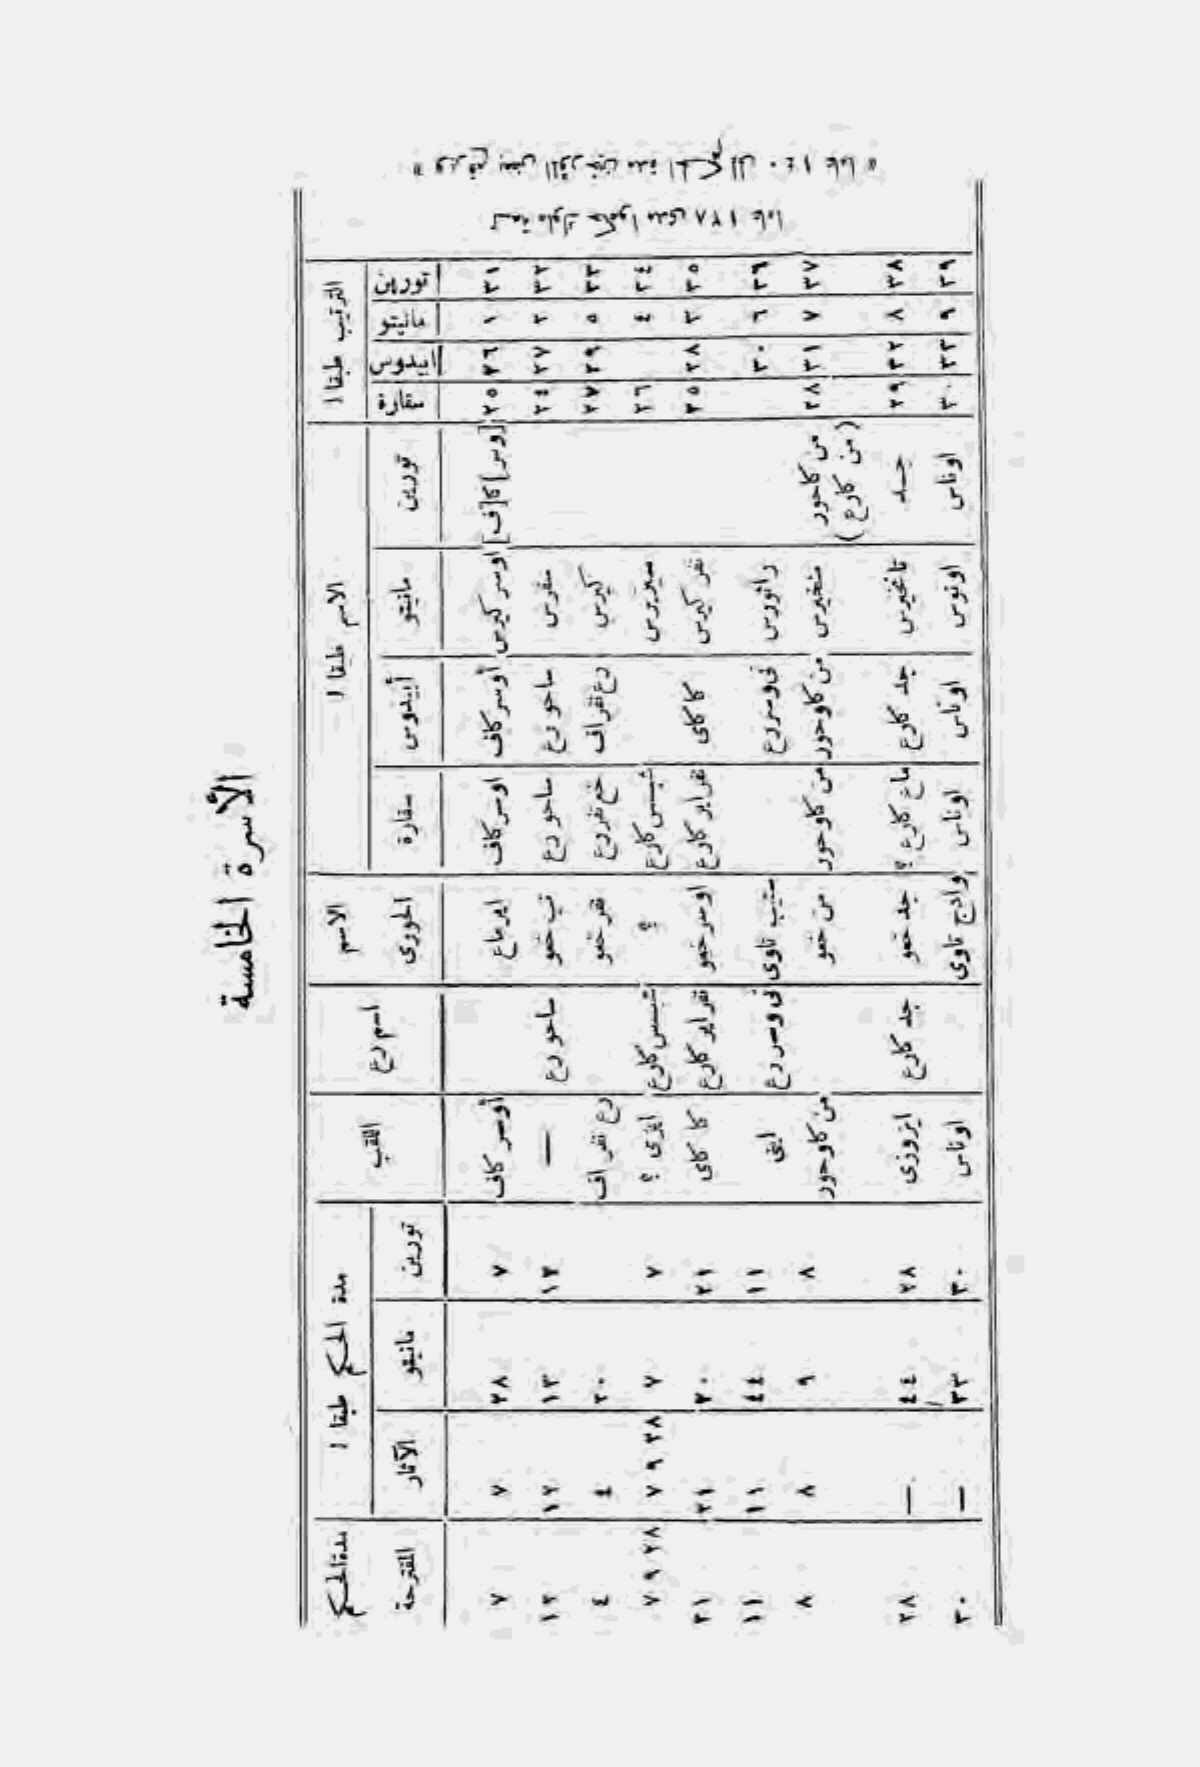 الأسرة الخامسة
الترتيب طبقا لـ | الاسم طبقا لـ | الاسم | اسم رع | اللقب | مدة الحكم طبقا لـ | مدة الحكم
تورين | مانيتو | ابيدوس | سقارة | تورين | مانيتو | أبيدوس | سقارة | الحورى | تورين | مانيتو | الآثار | المقترحة
٣١ | ١ | ٢٦ | ٢٥ | [وسر] كا[ف] | اوسر كيرس | أوسر كاف | اوسر كاف | اير ماع | أوسر كاف | ٧ | ٢٨ | ٧ | ٧
٣٢ | ٢ | ٢٧ | ٢٤ | سفرس | ساحو رع | ساحو رع | نب خعو | ساحو رع | — | ١٢ | ١٣ | ١٢ | ١٢
٣٣ | ٥ | ٢٩ | ٢٧ | كيرس | رع نفر اف | خع نفر رع | نفر خعو | رع نفر اف | ٢٠ | ٤ | ٤
٣٤ | ٤ | ٢٦ | سيريرس | شبسس كارع | ؟ | شبسس كارع | ايزى ؟ | ٧ | ٧ | ٧ ٩ ٢٨ | ٧ ٩ ٢٨
٣٥ | ٣ | ٢٨ | ٢٥ | نفر كيرس | كا كاى | نفر اير كارع | اوسر خعو | نفر اير كارع | كا كاى | ٢١ | ٢٠ | ٢١ | ٢١
٣٦ | ٦ | ٣٠ | راثورس | نى وسر رع | ستيب تاوى | نى وسر رع | اينى | ١١ | ٤٤ | ١١ | ١١
٣٧ | ٧ | ٣١ | ٢٨ | من كاحور (من كارع) | منخيرس | من كاوحور | من كاوحور | من خعو | من كاوحور | ٨ | ٩ | ٨ | ٨
٣٨ | ٨ | ٣٢ | ٢٩ | جد | تانخيرس | جد كارع | ماع كارع ؟ | جد خعو | جد كارع | ايزوزى | ٢٨ | ٤٤ | — | ٢٨
٣٩ | ٩ | ٣٣ | ٣٠ | اوناس | اونوس | اوناس | اوناس | وادج تاوى | اوناس | ٣٠ | ٣٣ | — | ٣٠
تسعة ملوك حكموا مدى ١٢٨ عاما
« ويرفع بعض المؤرخين مدة الحكم الى ١٤٠ عاما »